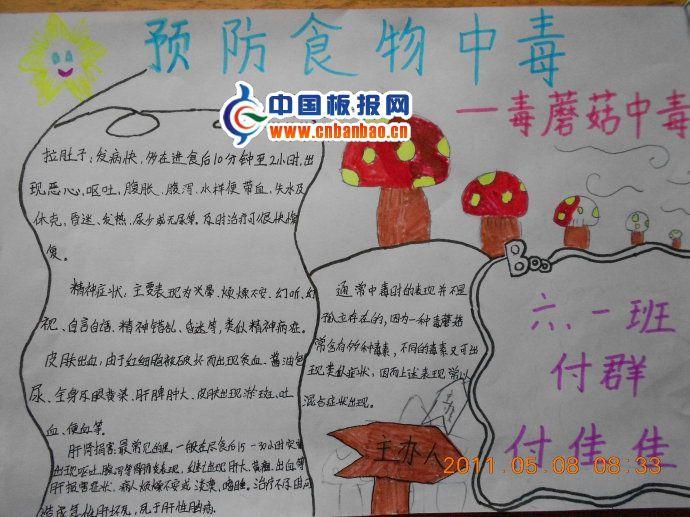 预防食物中毒
中国板报网
www.cnbanbao.cn
一毒蘑菇中毒
拉肚子:发病快,所在进食后10分钟至2小时,出
现恶心、呕吐、腹胀、腹泻、水样便带血,失水及
休克,昏迷、发热、尿少或无尿等,及时治疗可很快恢
复。
精神症状:主要表现为兴奋、烦燥不安、幻听、幻
视、自言自语、精神错乱、昏迷等,类似精神病症。
皮肤出血,由于红细胞被破坏而出现贫血、酱油色
尿、全身及眼黄染、肝脾肿大、皮肤出现淤斑、吐
血、便血等。
肝肾损害:最常见的是,一般在食后15-30小时
出现呕吐、腹泻等 表现,继之出现肝大、黄疸、出血等
肝损害症状,病人烦燥不安或淡漠、嗜睡。治疗不及时可
造成急性肝坏死,死于肝性脑病。
通常中毒时的表现并不是
孤立存在的,因为一种毒蘑菇
常含有多种毒素,不同的毒素又可出
现类似症状,因而上述表现常以
混合症状出现。
主办人
六、一班
付群
付佳佳
2011.05.08 08:33